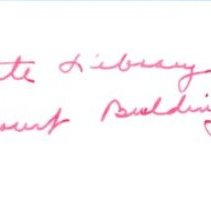 te Library
ourt Buildin